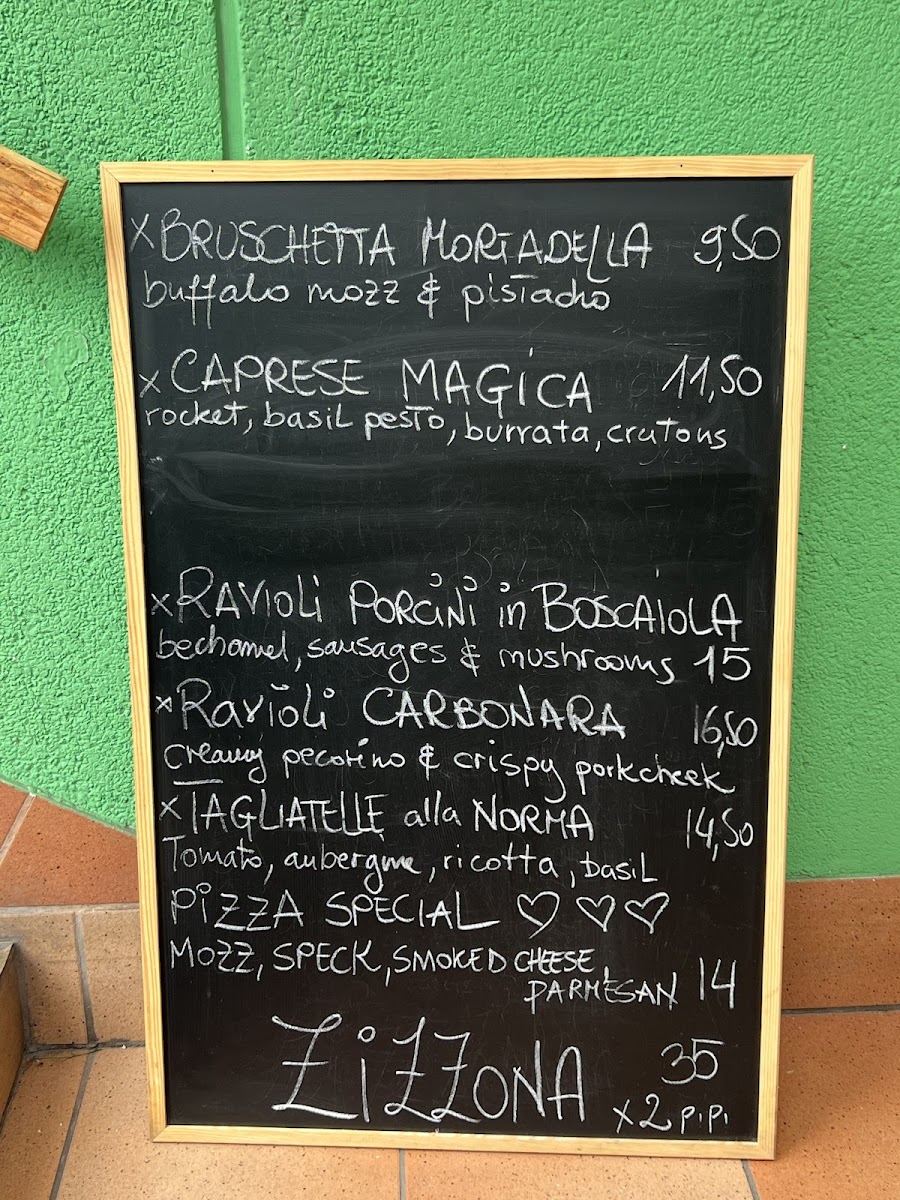 x BRUSCHETTA MORTADELLA 9,50
buffalo mozz & pistacho
x CAPRESE MAGICA 11,50
rocket, basil pesto, burrata, crutons
x RAVIOLI PORCINI in BOSCAIOLA
bechamel, sausages & mushrooms 15
x Ravioli CARBONARA 16,50
creamy pecorino & crispy porkcheek
x TAGLIATELLE alla NORMA 14,50
Tomato, aubergine, ricotta, basil
PIZZA SPECIAL ♡ ♡ ♡
MOZZ, SPECK, SMOKED CHEESE,
PARMESAN 14
ZIZZONA 35
x 2 p.p.